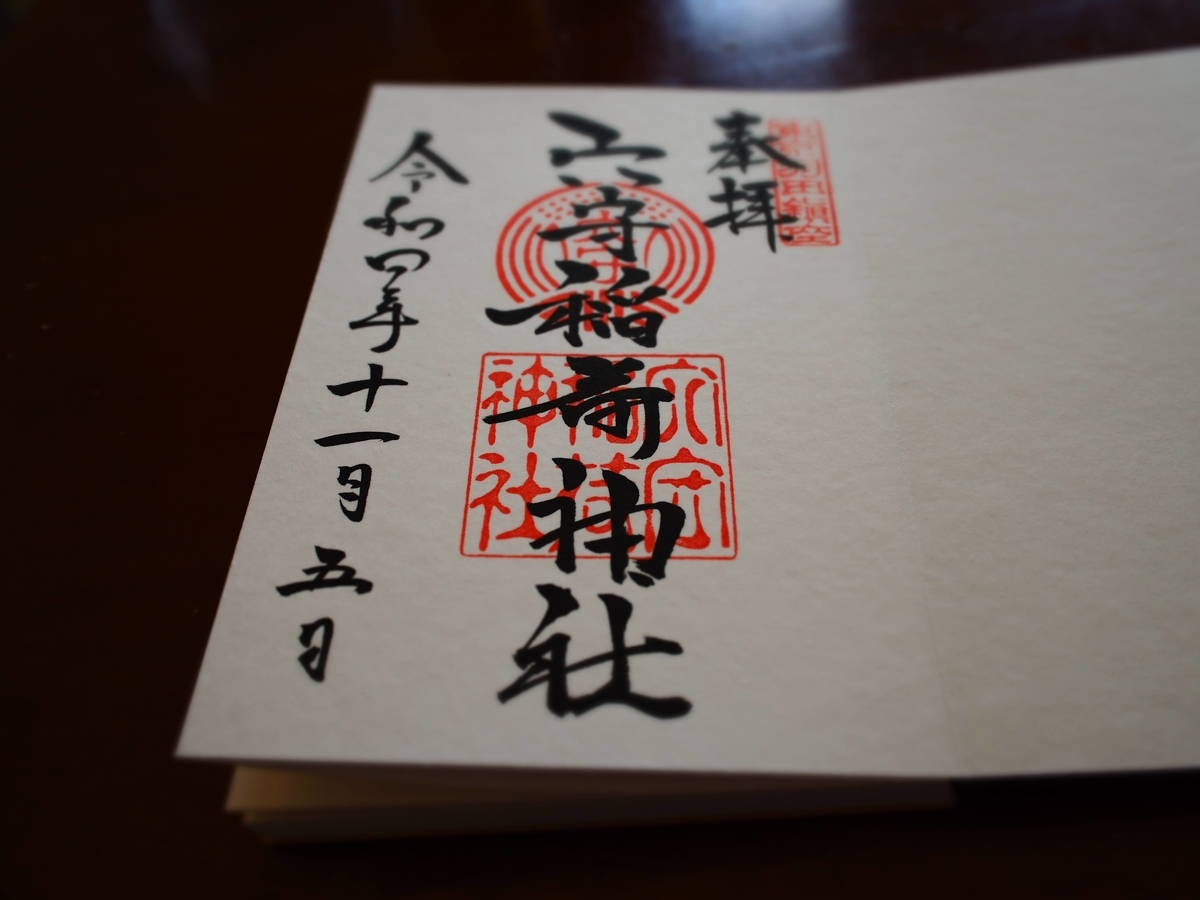 奉拝
羽田鎮座
穴守稲荷神社
穴守
稲荷
神社
令和四年十一月五日